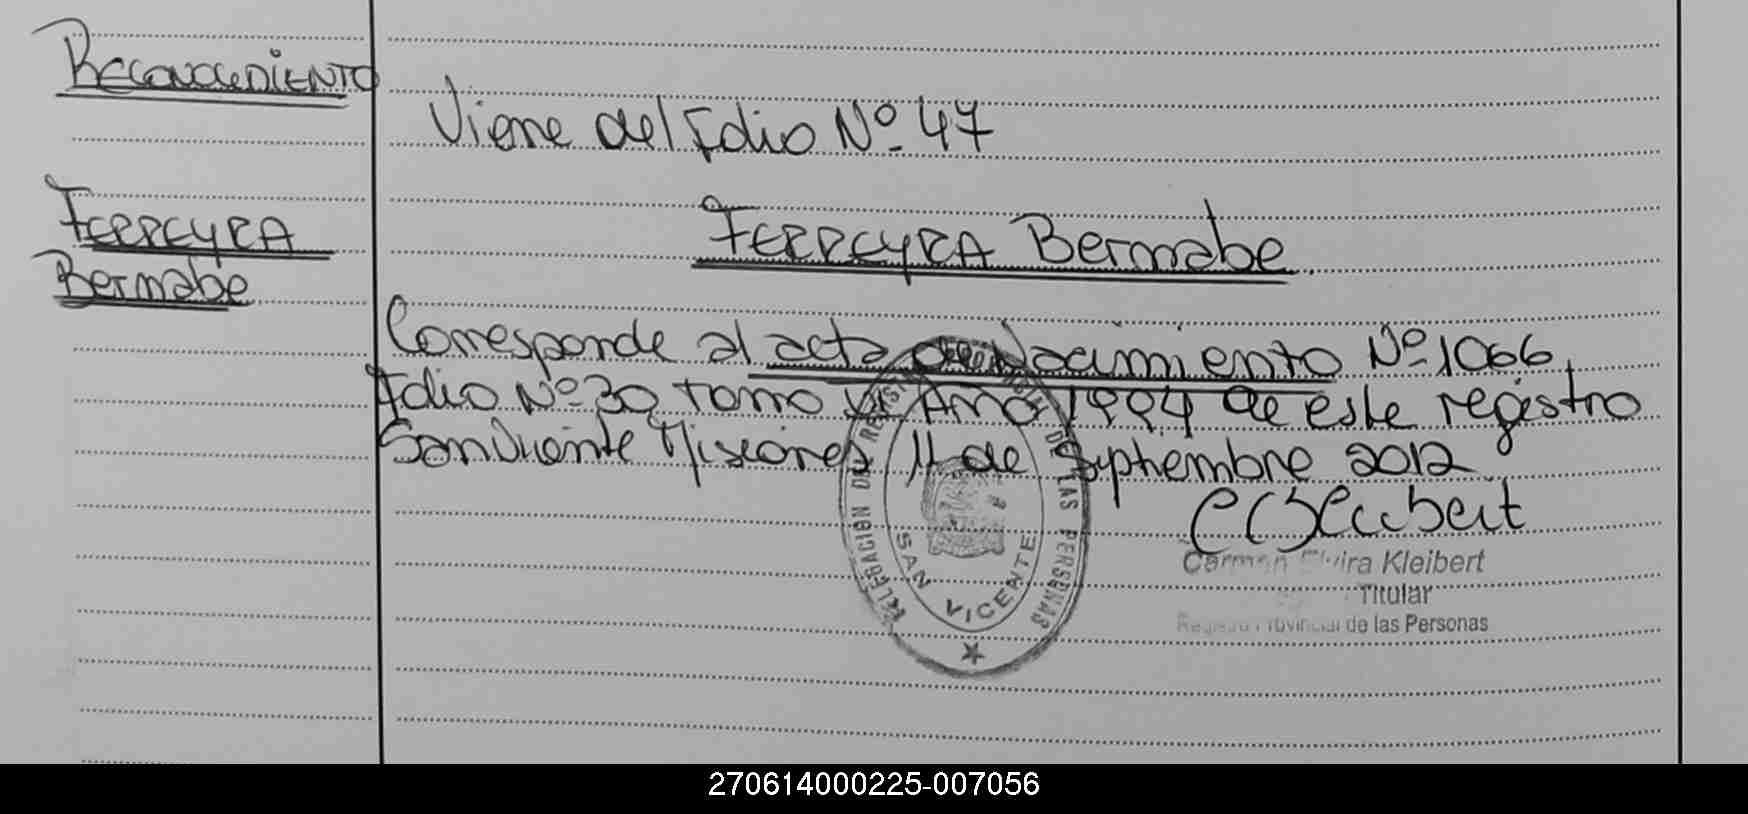 RECONOCIMIENTO
Viene del Folio Nº 47
FERREYRA
Bernabe
FERREYRA Bernabe
Corresponde al acta de Nacimiento Nº 1066,
Folio Nº 30 tomo Año 1994 de este registro
San Vicente Misiones 11 de Septiembre 2012
DELEGACION DE REGISTRO DE LAS PERSONAS
SAN VICENTE
Carmen Elvira Kleibert
Titular
Registro Provincial de las Personas
270614000225-007056